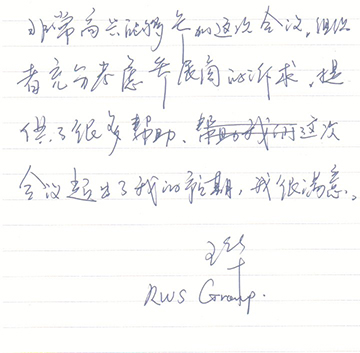 非常高兴能够参加这次会议，组织
者充分考虑参展商的诉求，提
供了很多帮助、帮助我们这次
会议超出了我的预期，我很满意。
王华
RWS Group.